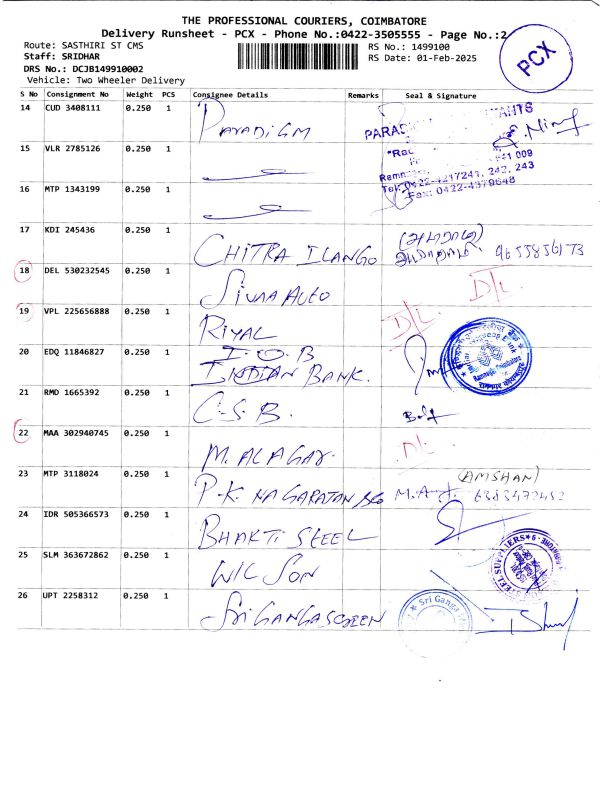 THE PROFESSIONAL COURIERS, COIMBATORE
Delivery Runsheet - PCX - Phone No.:0422-3505555 - Page No.:2
Route: SASTHIRI ST CMS
RS No.: 1499100
Staff: SRIDHAR
RS Date: 01-Feb-2025
DRS No.: DCJB149910002
Vehicle: Two Wheeler Delivery
PCX
S No Consignment No Weight PCS Consignee Details Remarks Seal & Signature
14 CUD 3408111 0.250 1 PARADIGM
Tel: 0422-4217241, 242, 243
Fax: 0422-4379648
15 VLR 2785126 0.250 1
16 MTP 1343199 0.250 1
17 KDI 245436 0.250 1 CHITRA ILANGO 9655856173
18 DEL 530232545 0.250 1 SIVAA AUTO D/L
19 VPL 225656888 0.250 1 RIYAL D/L
20 EDQ 11846827 0.250 1 I.O.B
INDIAN BANK.
21 RMD 1665392 0.250 1 C.S.B.
22 MAA 302940745 0.250 1 M. ALAGAR D/L
23 MTP 3118024 0.250 1 P.K. NAGARATAN (AMSHAN)
24 IDR 505366573 0.250 1 BHAKTI STEEL
25 SLM 363672862 0.250 1 WILSON
26 UPT 2258312 0.250 1 SRI GANGASCREEN Sri Ganga